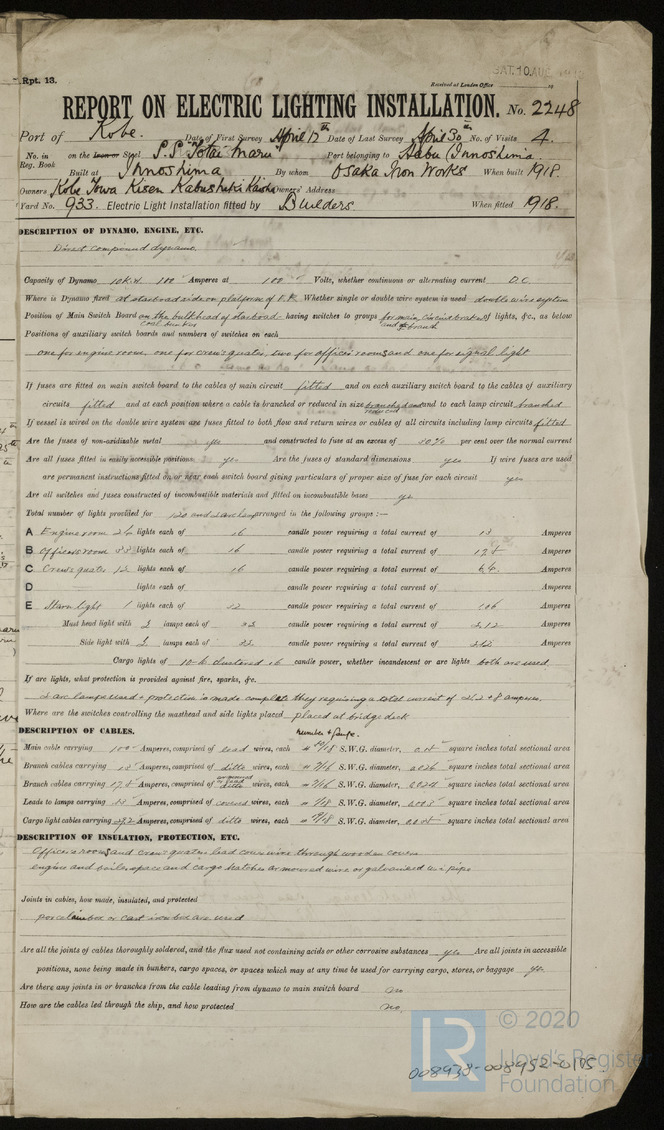 Rpt. 13.
SAT. 10 AUG
Received at London Office
REPORT ON ELECTRIC LIGHTING INSTALLATION. No. 2248
Port of Kobe. Date of First Survey April 12th Date of Last Survey April 30th No. of Visits 4.
No. in Reg. Book on the Iron or Steel S.S. Totai Maru Port belonging to Habu (Innoshima
Built at Innoshima By whom Osaka Iron Works When built 1918.
Owners Kobe Towa Kisen Kabushiki Kaisha Owners' Address
Yard No. 933. Electric Light Installation fitted by Builders When fitted 1918.
DESCRIPTION OF DYNAMO, ENGINE, ETC.
Direct compound dynamo.
Capacity of Dynamo 10 K.W. 100 Amperes at 100 Volts, whether continuous or alternating current D.C.
Where is Dynamo fixed at starboard side on platform of E.R. Whether single or double wire system is used double wire system
Position of Main Switch Board on the bulkhead of starboard coal bunker having switches to groups for main, circuit breaker and branch of lights, &c., as below
Positions of auxiliary switch boards and numbers of switches on each
one for engine room, one for crew's quater, two for officer rooms and one for signal light
If fuses are fitted on main switch board to the cables of main circuit fitted and on each auxiliary switch board to the cables of auxiliary
circuits fitted and at each position where a cable is branched or reduced in size branched and reduced and to each lamp circuit branched
If vessel is wired on the double wire system are fuses fitted to both flow and return wires or cables of all circuits including lamp circuits fitted
Are the fuses of non-oxidizable metal yes and constructed to fuse at an excess of 50% per cent over the normal current
Are all fuses fitted in easily accessible positions yes Are the fuses of standard dimensions yes If wire fuses are used
are permanent instructions fitted on or near each switch board giving particulars of proper size of fuse for each circuit yes
Are all switches and fuses constructed of incombustible materials and fitted on incombustible bases yes
Total number of lights provided for 120 and 2 arc lamp arranged in the following groups :—
A Engine room 26 lights each of 16 candle power requiring a total current of 13 Amperes
B Officers room 35 lights each of 16 candle power requiring a total current of 17.5 Amperes
C Crew's quater 12 lights each of 16 candle power requiring a total current of Amperes
D lights each of candle power requiring a total current of Amperes
E Stern light 1 lights each of 32 candle power requiring a total current of 1.06 Amperes
Mast head light with 2 lamps each of 32 candle power requiring a total current of 2.12 Amperes
Side light with 2 lamps each of 32 candle power requiring a total current of 2.12 Amperes
Cargo lights of 10-6 clustered 16 candle power, whether incandescent or arc lights both are used
If arc lights, what protection is provided against fire, sparks, &c.
2 arc lamps used & protection is made complete they requiring a total current of amperes.
Where are the switches controlling the masthead and side lights placed placed at bridge deck
DESCRIPTION OF CABLES.
number & gauge.
Main cable carrying 100 Amperes, comprised of lead wires, each S.W.G. diameter, square inches total sectional area
Branch cables carrying 13 Amperes, comprised of ditto wires, each S.W.G. diameter, square inches total sectional area
Branch cables carrying 17.5 Amperes, comprised of armoured or lead ditto wires, each S.W.G. diameter, square inches total sectional area
Leads to lamps carrying Amperes, comprised of covered wires, each S.W.G. diameter, square inches total sectional area
Cargo light cables carrying 27.2 Amperes, comprised of ditto wires, each S.W.G. diameter, square inches total sectional area
DESCRIPTION OF INSULATION, PROTECTION, ETC.
Officer's rooms and crew's quater lead cover wire through wooden covers
engine and boiler space and cargo hatches armoured wire or galvanised iron pipe
Joints in cables, how made, insulated, and protected
porcelain box or cast iron box are used
Are all the joints of cables thoroughly soldered, and the flux used not containing acids or other corrosive substances yes Are all joints in accessible
positions, none being made in bunkers, cargo spaces, or spaces which may at any time be used for carrying cargo, stores, or baggage yes
Are there any joints in or branches from the cable leading from dynamo to main switch board no
How are the cables led through the ship, and how protected no.
LR
© 2020
Lloyd's Register
Foundation
008938-008952-0175